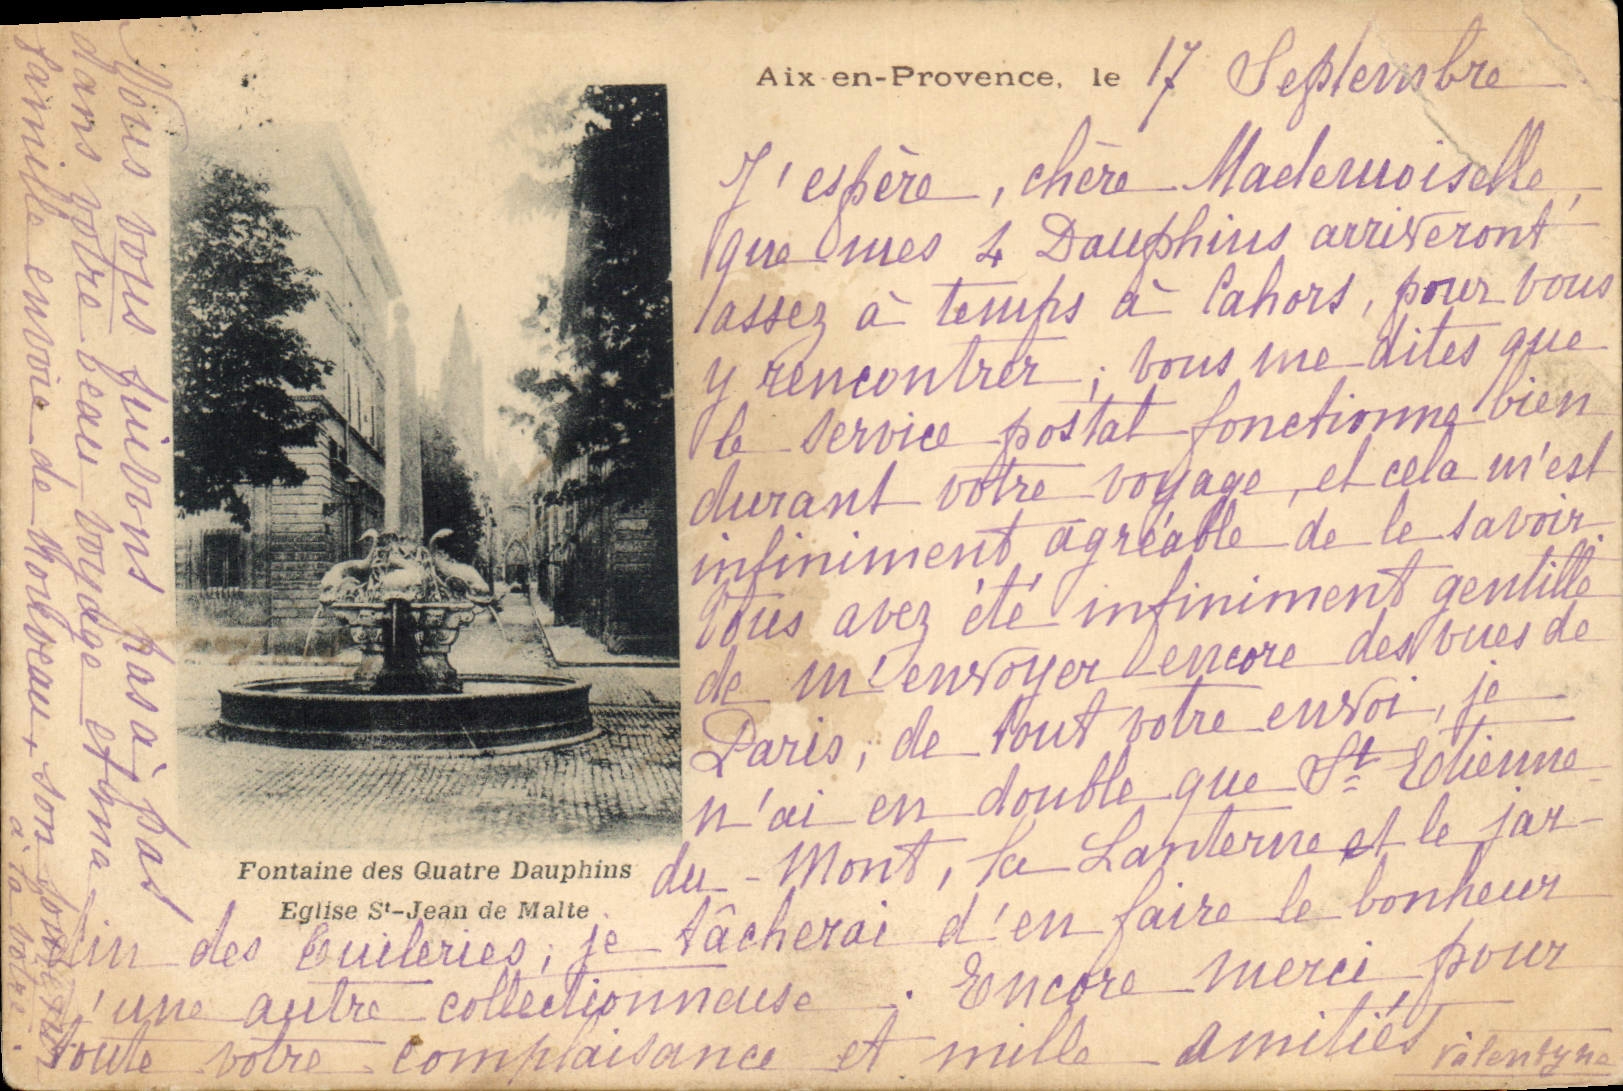 Aix-en-Provence, le 17 Septembre
J'espère, chère Mademoiselle,
que mes 4 Dauphins arriveront
assez à temps à Cahors, pour vous
y rencontrer; vous me dites que
le service postal fonctionne bien
durant votre voyage, et cela m'est
infiniment agréable de le savoir.
Vous avez été infiniment gentille
de m'envoyer encore des vues de
Paris, de tout votre envoi, je
n'ai en double que St Etienne
du-Mont, la Lanterne et le jar-
din des Tuileries; je tâcherai d'en faire le bonheur
d'une autre collectionneuse. Encore merci pour
toute votre complaisance et mille amitiés
Valentyne
Fontaine des Quatre Dauphins
Eglise St-Jean de Malte
Nous vous suivons pas à pas
dans votre beau voyage et ma
famille envoie de nouveau son
à la votre.